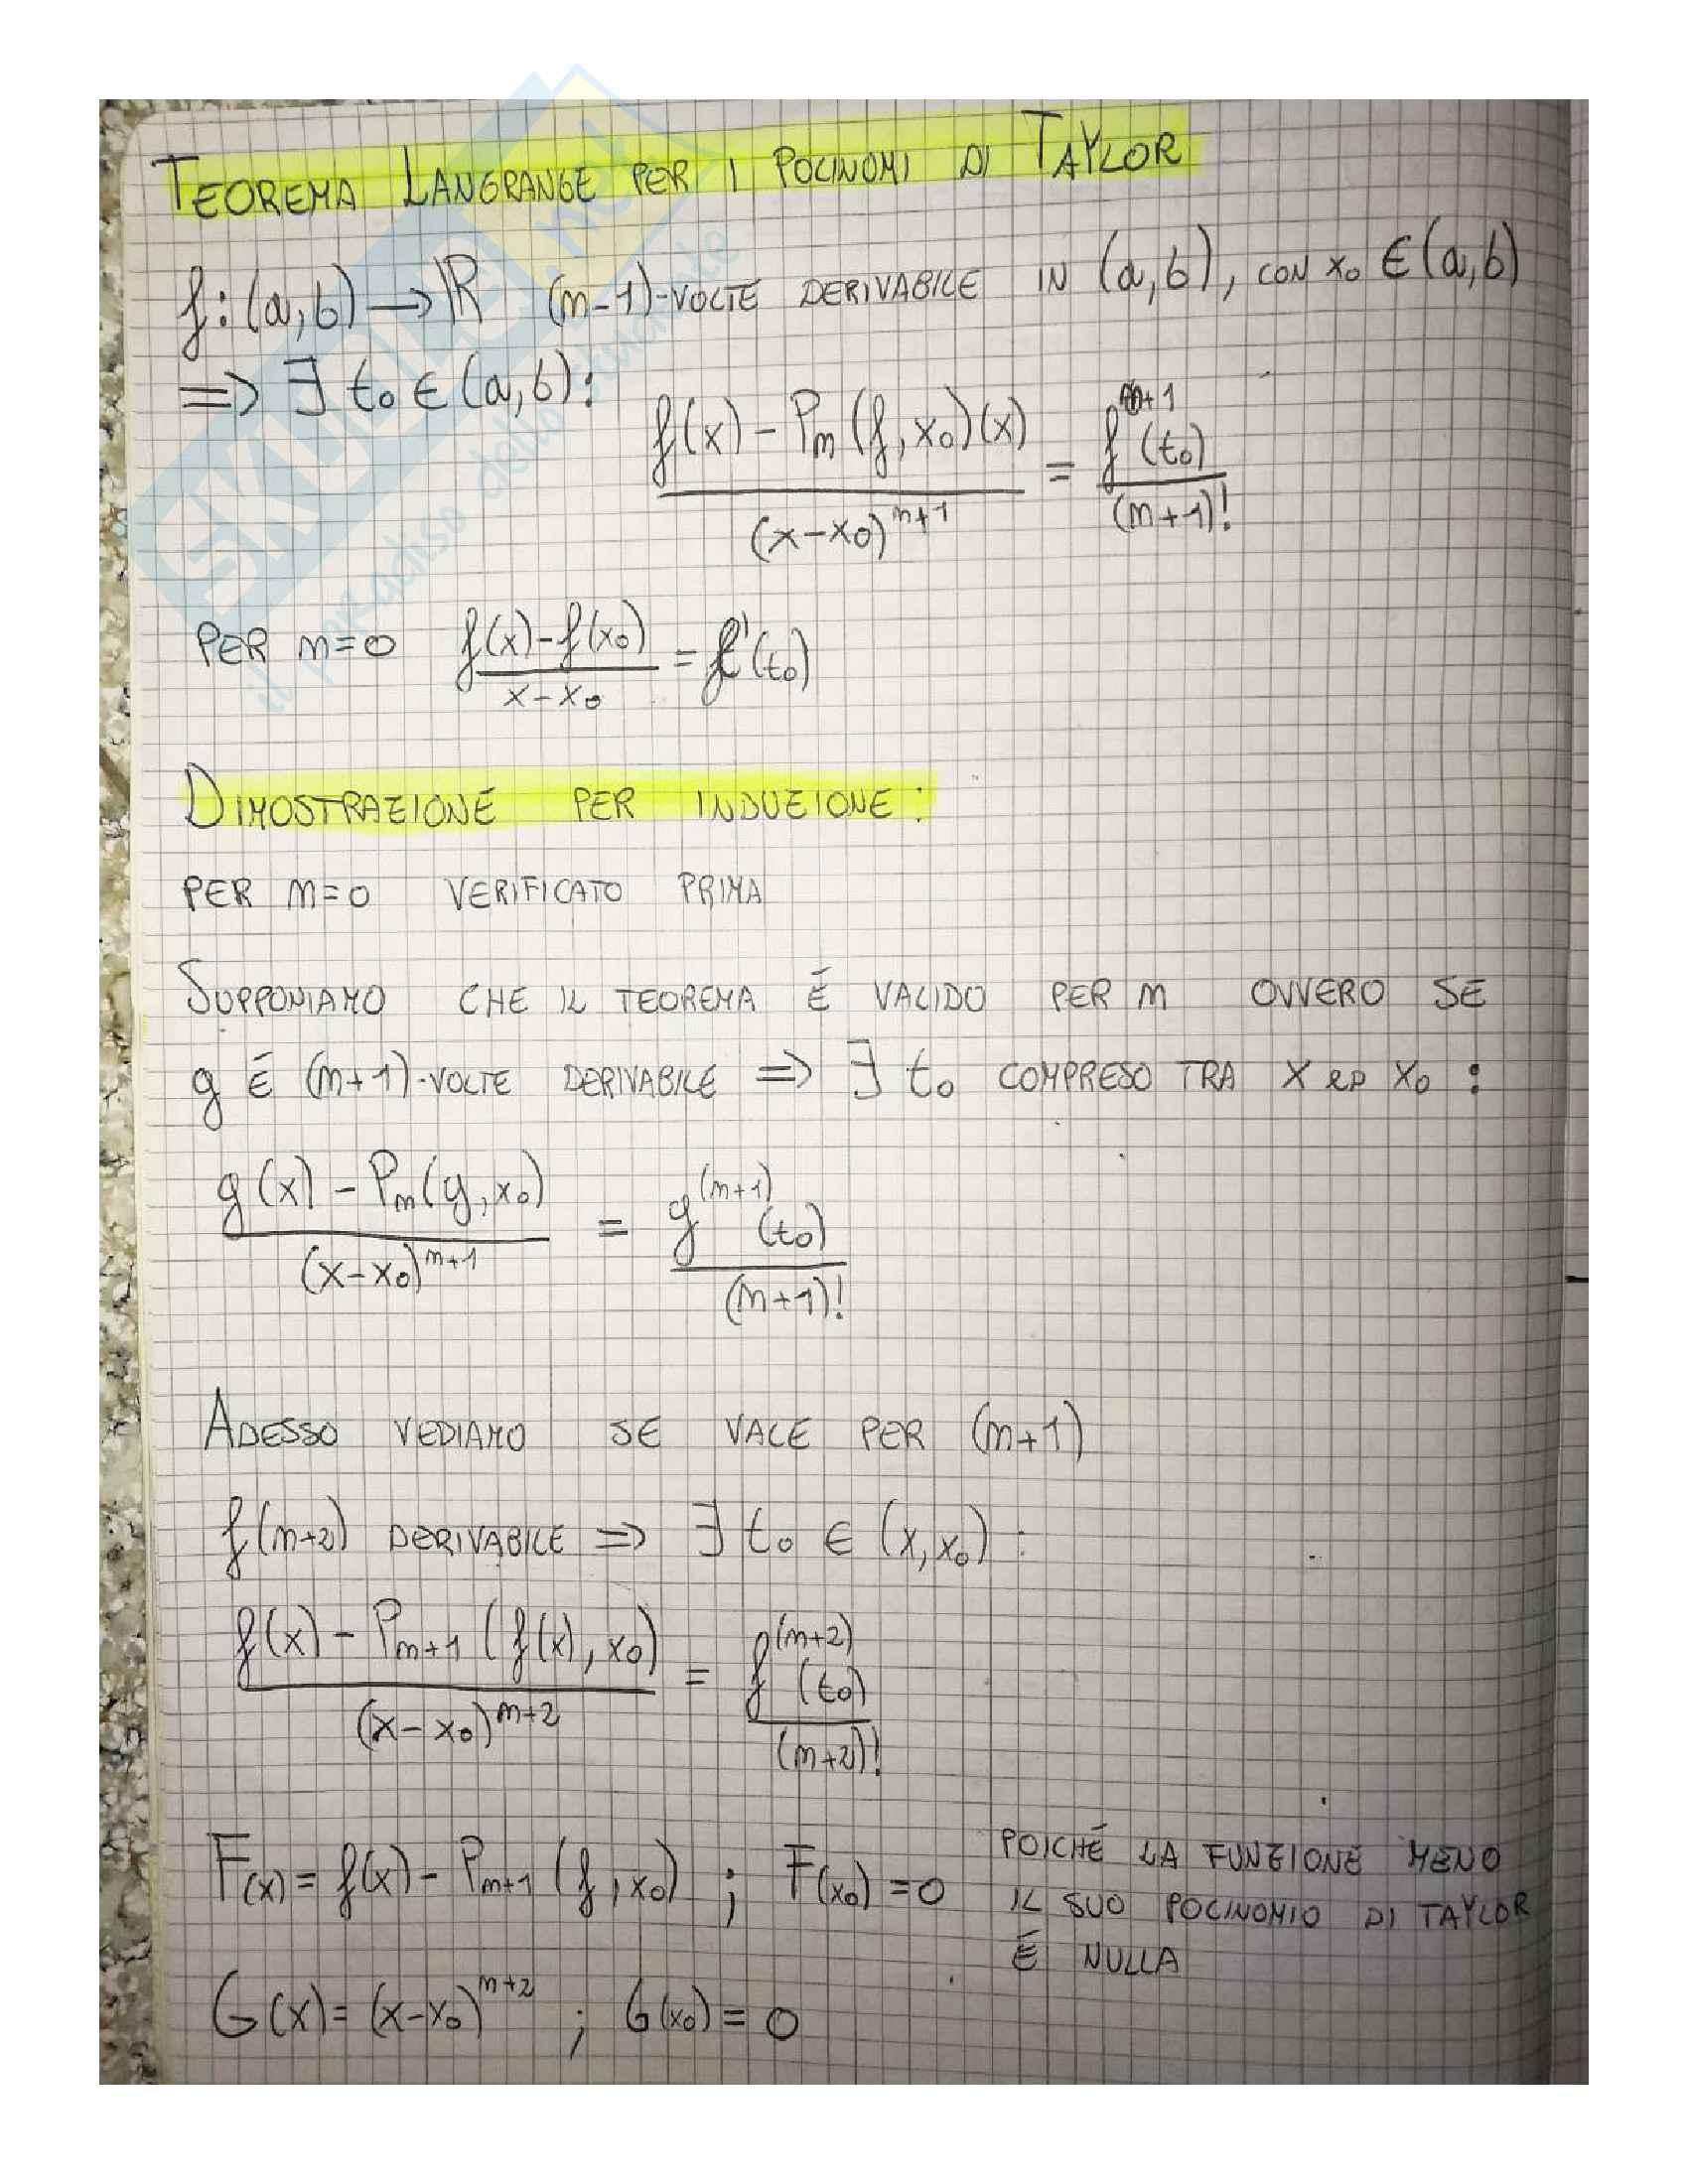 TEOREMA LANGRANGE PER I POLINOMI DI TAYLOR
f:(a,b)→ℝ (n-1)-VOLTE DERIVABILE IN (a,b), CON x₀ ∈ (a,b)
=> ∃ t₀ ∈ (a,b):
f(x) - Pₙ(f,x₀)(x) / (x-x₀)ⁿ⁺¹ = fⁿ⁺¹(t₀) / (n+1)!
PER n=0 f(x)-f(x₀) / x-x₀ = f'(t₀)
DIMOSTRAZIONE PER INDUZIONE:
PER n=0 VERIFICATO PRIMA
SUPPONIAMO CHE IL TEOREMA É VALIDO PER n OVVERO SE
g É (n+1)-VOLTE DERIVABILE => ∃ t₀ COMPRESO TRA x ED x₀ :
g(x) - Pₙ(g,x₀) / (x-x₀)ⁿ⁺¹ = g⁽ⁿ⁺¹⁾(t₀) / (n+1)!
ADESSO VEDIAMO SE VALE PER (n+1)
f(n+2) DERIVABILE => ∃ t₀ ∈ (x,x₀) :
f(x) - Pₙ₊₁(f(x),x₀) / (x-x₀)ⁿ⁺² = f⁽ⁿ⁺²⁾(t₀) / (n+2)!
F(x) = f(x) - Pₙ₊₁(f,x₀) ; F(x₀) = 0 POICHÉ LA FUNZIONE MENO
IL SUO POLINOMIO DI TAYLOR
É NULLA
G(x) = (x-x₀)ⁿ⁺² ; G(x₀) = 0
SKUOLA.net
il paradiso dello studente